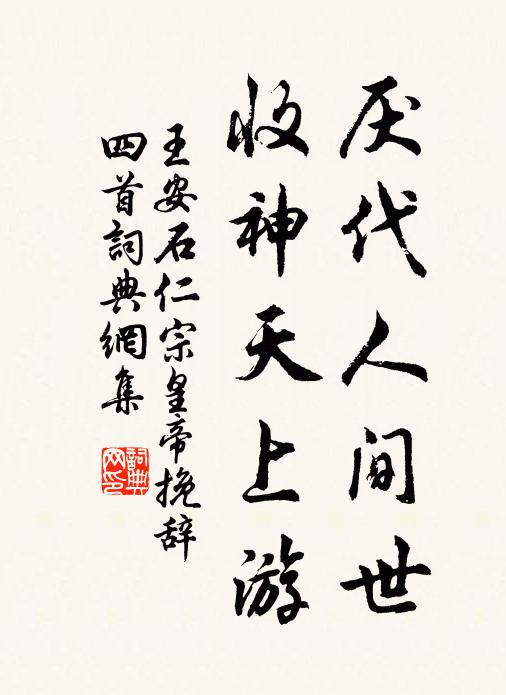 厌代人间世
收神天上游
王安石仁宗皇帝挽辞
四首詞典網集
詞典網印